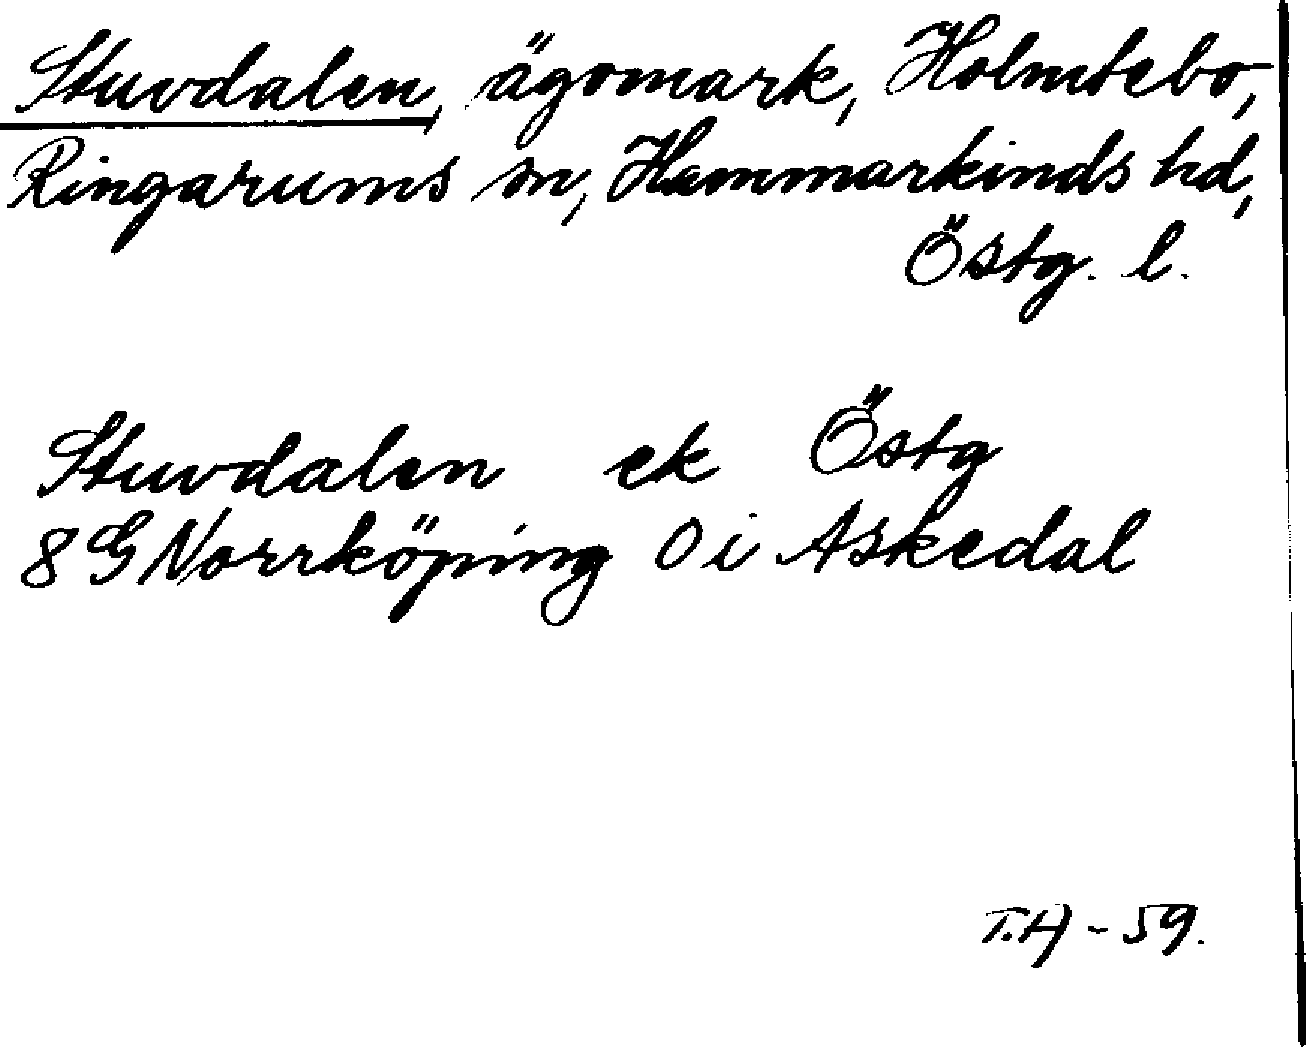 Stuvdalen, ägomark, Holmtebo,
Ringarums sn, Hammarkinds hd,
Östg. l.
Stuvdalen ek Östg
8 G Norrköping O i Askedal
T.H - 59.